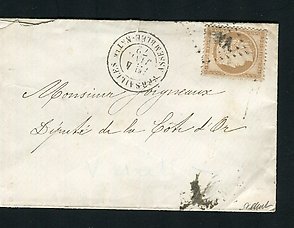 VERSAILLES
ASSEMBLÉE-NATLE
Monsieur Joigneaux
Député de la Côte d'Or